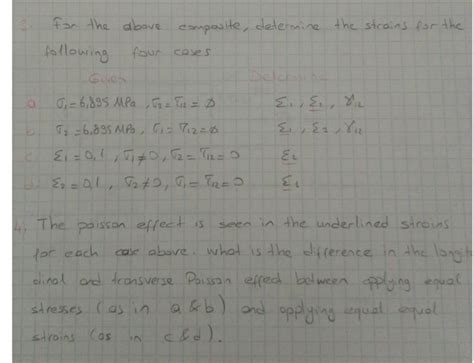 3. For the above composite, determine the strains for the
following four cases
Given Determine
a σ₁=6,895 MPa, σ₂=τ₁₂=0 ε₁, ε₂, γ₁₂
b σ₂=6,895 MPa, σ₁=τ₁₂=0 ε₁, ε₂, γ₁₂
c ε₁=0,1, σ₁≠0, σ₂=τ₁₂=0 ε₂
d. ε₂=0,1, σ₂≠0, σ₁=τ₁₂=0 ε₁
4. The poisson effect is seen in the underlined strains
for each above. What is the difference in the longit
dinal and transverse Poisson effect between applying equal
stresses (as in a&b) and applying equal equal
strains (as in c&d).